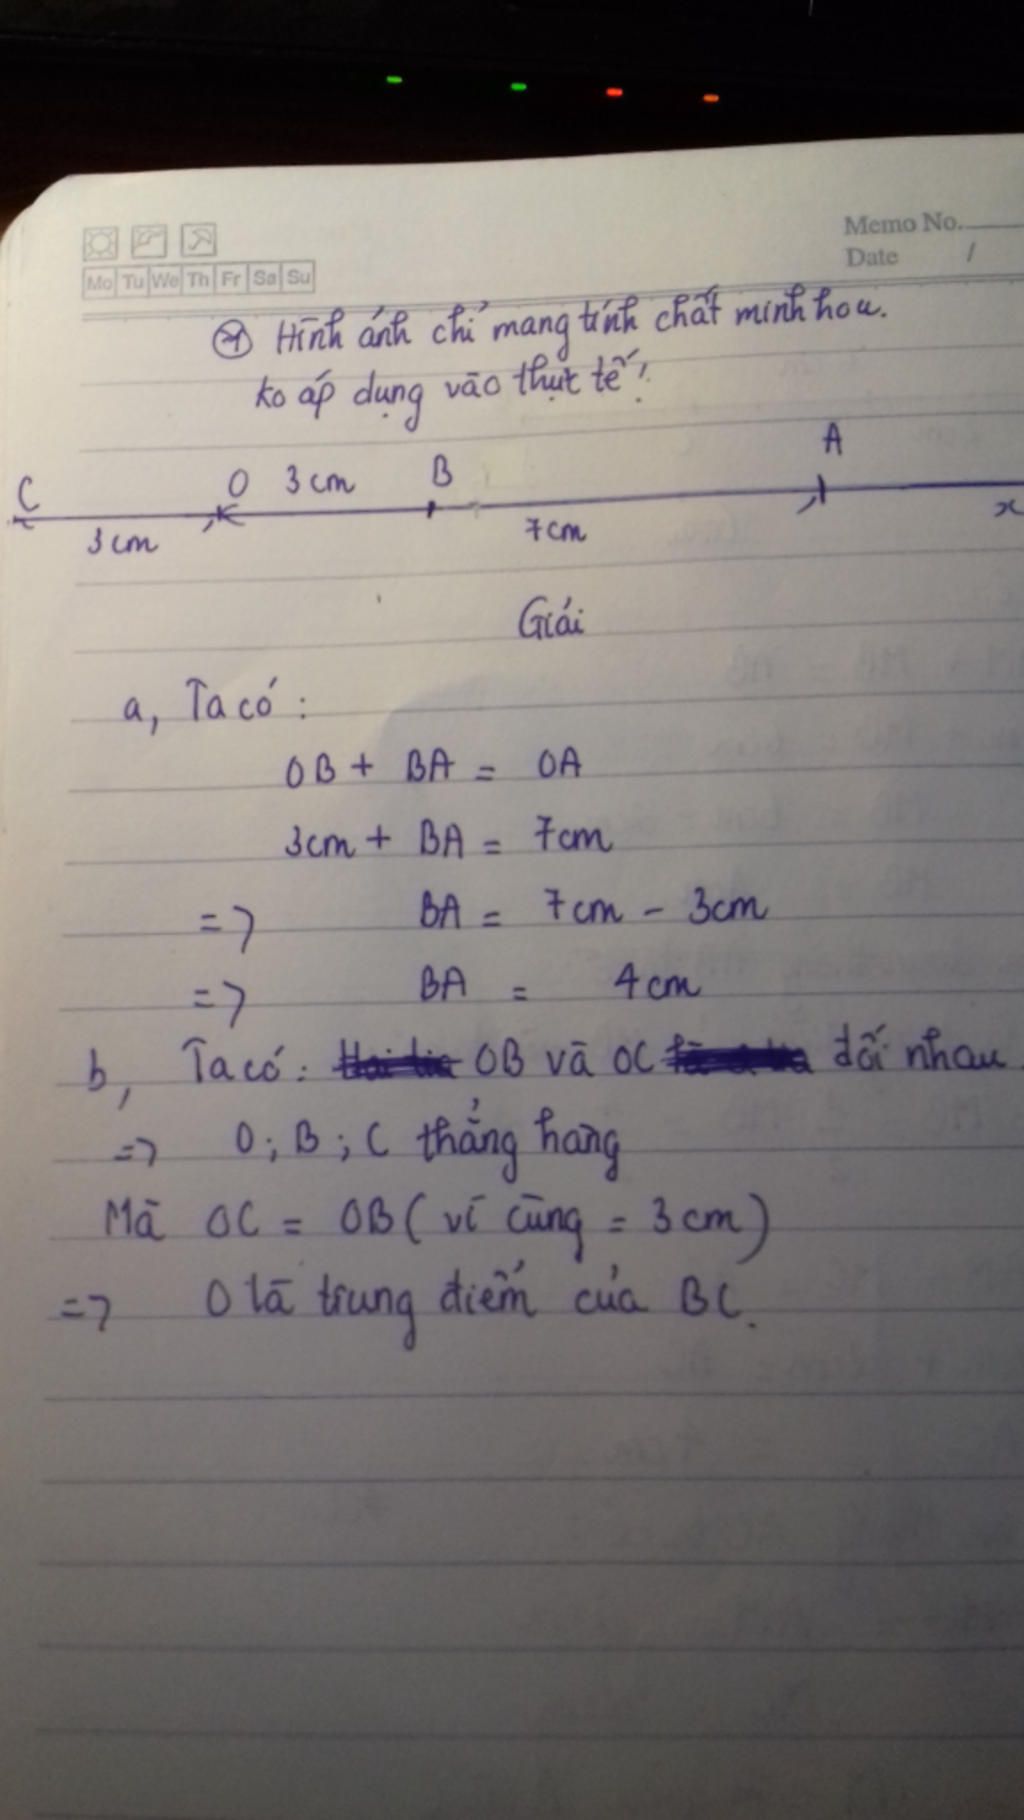 Memo No.
Date /
Mo Tu We Th Fr Sa Su
* Hình ảnh chỉ mang tính chất minh hoạ.
ko áp dụng vào thực tế!
C O 3cm B A
3cm 7cm x
Giải
a, Ta có:
OB + BA = OA
3cm + BA = 7cm
=> BA = 7cm - 3cm
=> BA = 4cm
b, Ta có: OB và OC đối nhau
=> O; B; C thẳng hàng
Mà OC = OB (vì cùng = 3cm)
=> O là trung điểm của BC.